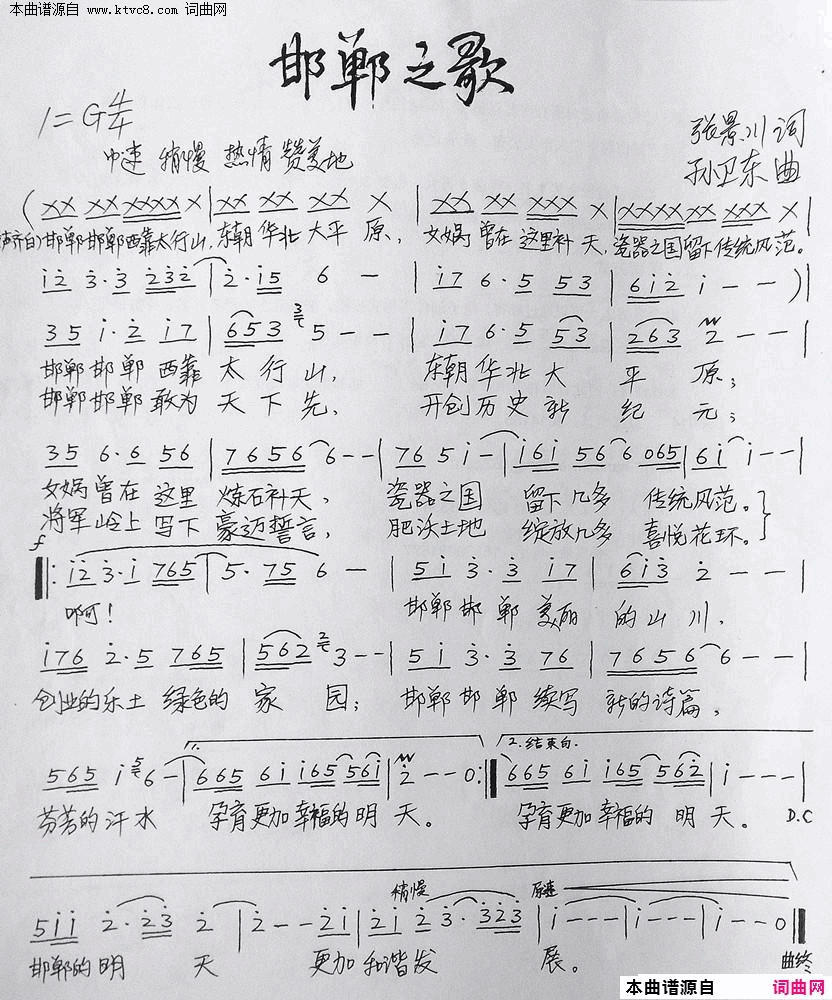 本曲谱源自
www.ktvc8.com 词曲网
邯郸之歌
1=G 4/4
张景川 词
中速 稍慢 热情 赞美地
孙卫东 曲
(XX XX XXXX X | XX XX XX X | XX XX XXX X | XXXXXX XXX X |
声齐白)邯郸邯郸西靠太行山,东朝华北大平原,女娲曾在这里补天,瓷器之国留下传统风范。
i2 3·3 232 | 2·i5 6 - | i7 6·5 5 53 | 6i2 i - - )|
35 i·2 i7 | 653 5 - - | i7 6·5 53 | 263 2 - - |
邯郸邯郸西靠太行山, 东朝华北大平原;
邯郸邯郸敢为天下先, 开创历史新纪元;
35 6·6 56 | 7656 6 - - | 76 5 i - | i6i 56 6 065 | 6i i - - |
女娲曾在这里炼石补天, 瓷器之国 留下几多 传统风范。
将军岭上写下豪迈誓言, 肥沃土地 绽放几多 喜悦花环。
f
‖: i2 3·i 765 | 5·75 6 - | 5i 3·3 i7 | 6i3 2 - - |
啊! 邯郸邯郸美丽的山川,
i76 2·5 765 | 562 3 - - | 5i 3·3 76 | 7656 6 - - |
创业的乐土绿色的家园; 邯郸邯郸续写新的诗篇,
1. 2.结束句.
565 i 6 - | 665 6i i65 56i | 2 - - 0 :‖ 665 6i i65 562 | i - - - |
芬芳的汗水 孕育更加幸福的明天。 孕育更加幸福的明天。 D.C
稍慢 原速
5ii 2·23 2 | 2 - - 2i | 2i 2 3·323 | i - - - | i - - - | i - - 0 ‖
邯郸的明天 更加和谐发展。 曲终
本曲谱源自 词曲网